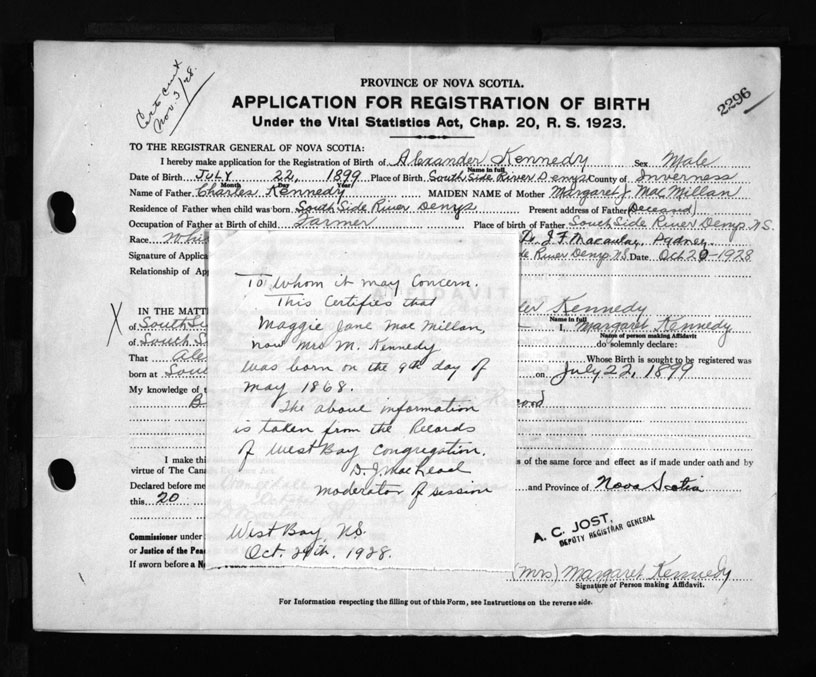 Cert sent
Nov. 3/28.
2296
PROVINCE OF NOVA SCOTIA.
APPLICATION FOR REGISTRATION OF BIRTH
Under the Vital Statistics Act, Chap. 20, R. S. 1923.
TO THE REGISTRAR GENERAL OF NOVA SCOTIA:
I hereby make application for the Registration of Birth of Alexander Kennedy Sex Male
Name in full
Date of Birth July 22, 1899 Place of Birth South Side River Denys County of Inverness
Month Day Year
Name of Father Charles Kennedy MAIDEN NAME of Mother Margaret J. MacMillan
Residence of Father when child was born South Side River Denys Present address of Father (Deceased)
Occupation of Father at Birth of child Farmer Place of birth of Father South Side River Denys N.S.
Race J. F. Macaulay,
Signature of Applica River Denys N.S. Date Oct 1928
Relationship of Ap
IN THE MATT Kennedy
Name in full
of South Si I, Margaret Kennedy
Name of person making Affidavit
of South S do solemnly declare:
That Ale Whose Birth is sought to be registered was
born at Sou on July 22, 1899
My knowledge of
I make thi s of the same force and effect as if made under oath and by
virtue of The Cana
Declared before me and Province of Nova Scotia
this 20
A. C. JOST,
DEPUTY REGISTRAR GENERAL
Commissioner under
or Justice of the Peac
If sworn before a N
(Mrs) Margaret Kennedy
Signature of Person making Affidavit.
For Information respecting the filling out of this Form, see Instructions on the reverse side.
To Whom it may Concern.
This Certifies that
Maggie Jane MacMillan,
now Mrs M. Kennedy
was born on the 9th day of
May 1868.
The above information
is taken from the Records
of West Bay Congregation.
D. J. MacLead
moderator of session
West Bay, N.S.
Oct. 29th. 1928.
X